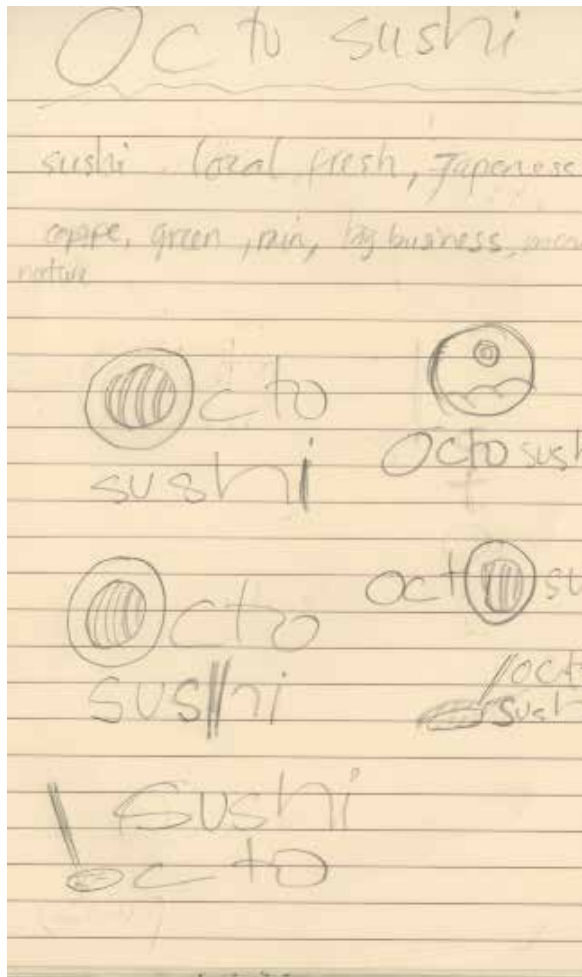 Octo sushi
sushi. local fresh, Japenese
green, rain, big business,
nature
Octo
sushi
Octo sush
Octo
sushi
octo su
oct
sush
sushi
octo